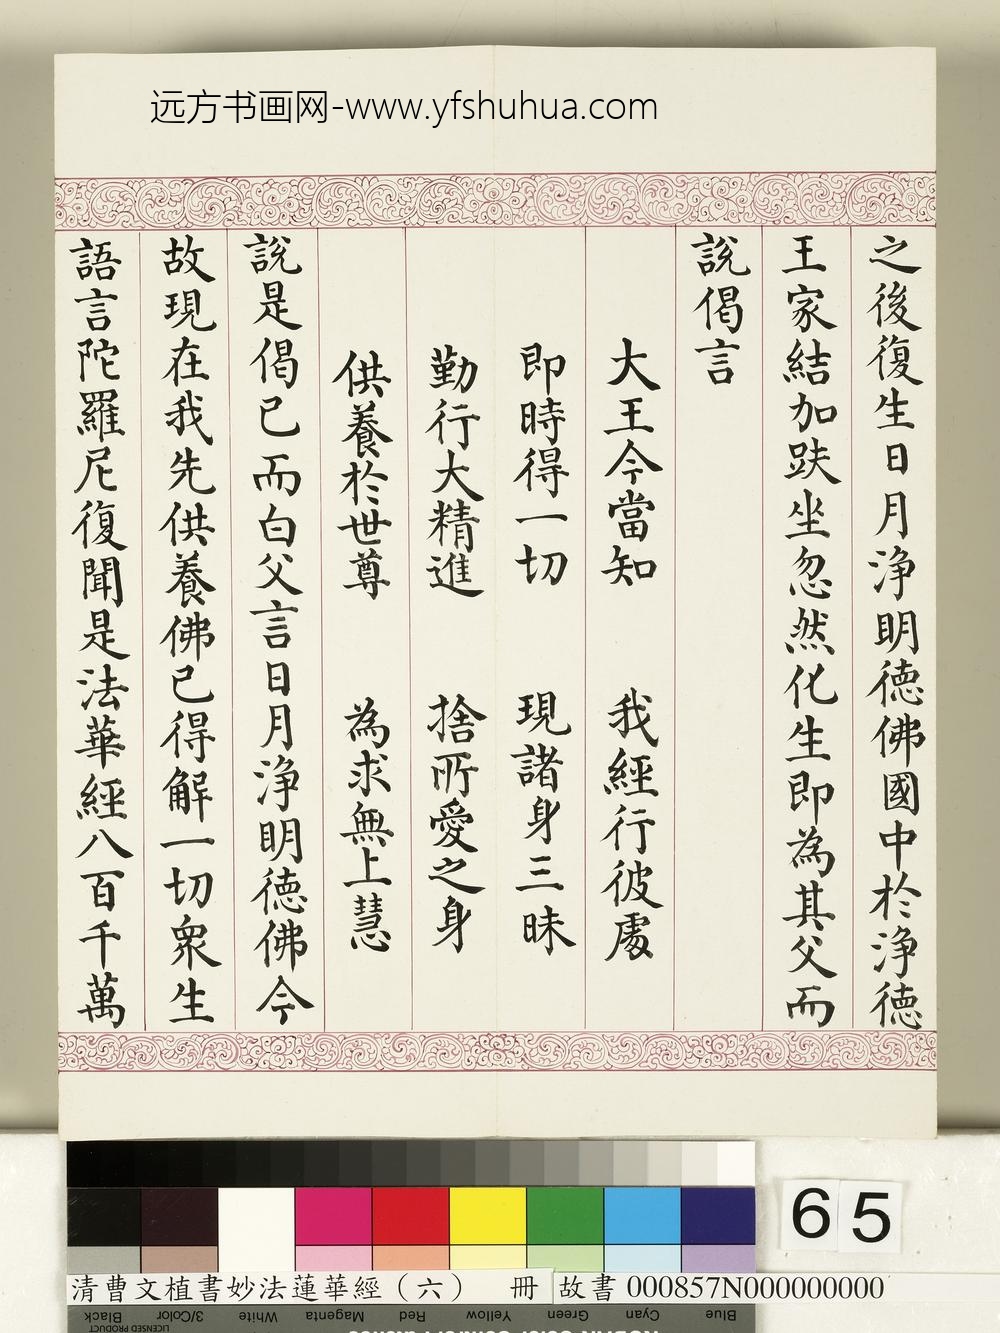 远方书画网-www.yfshuhua.com
之後復生日月淨明德佛國中於淨德
王家結加趺坐忽然化生即為其父而
說偈言
大王今當知 我經行彼處
即時得一切 現諸身三昧
勤行大精進 捨所愛之身
供養於世尊 為求無上慧
說是偈已而白父言日月淨明德佛今
故現在我先供養佛已得解一切眾生
語言陀羅尼復聞是法華經八百千萬
65
清曹文植書妙法蓮華經（六） 冊 故書 000857N000000000
Blue Cyan Green Yellow Red Magenta White 3/Color Black
LICENSED PRODUCT